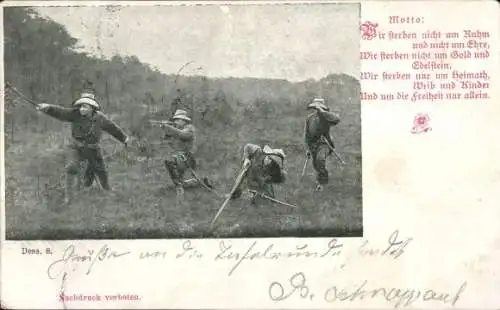 Motto:
Wir sterben nicht um Ruhm
und nicht um Ehre,
Wir sterben nicht um Gold und
Edelstein,
Wir sterben nur um Heimath,
Weib und Kinder
Und um die Freiheit nur allein.
Dess. 8.
Grüße an die Tafelrunde
Nachdruck verboten.